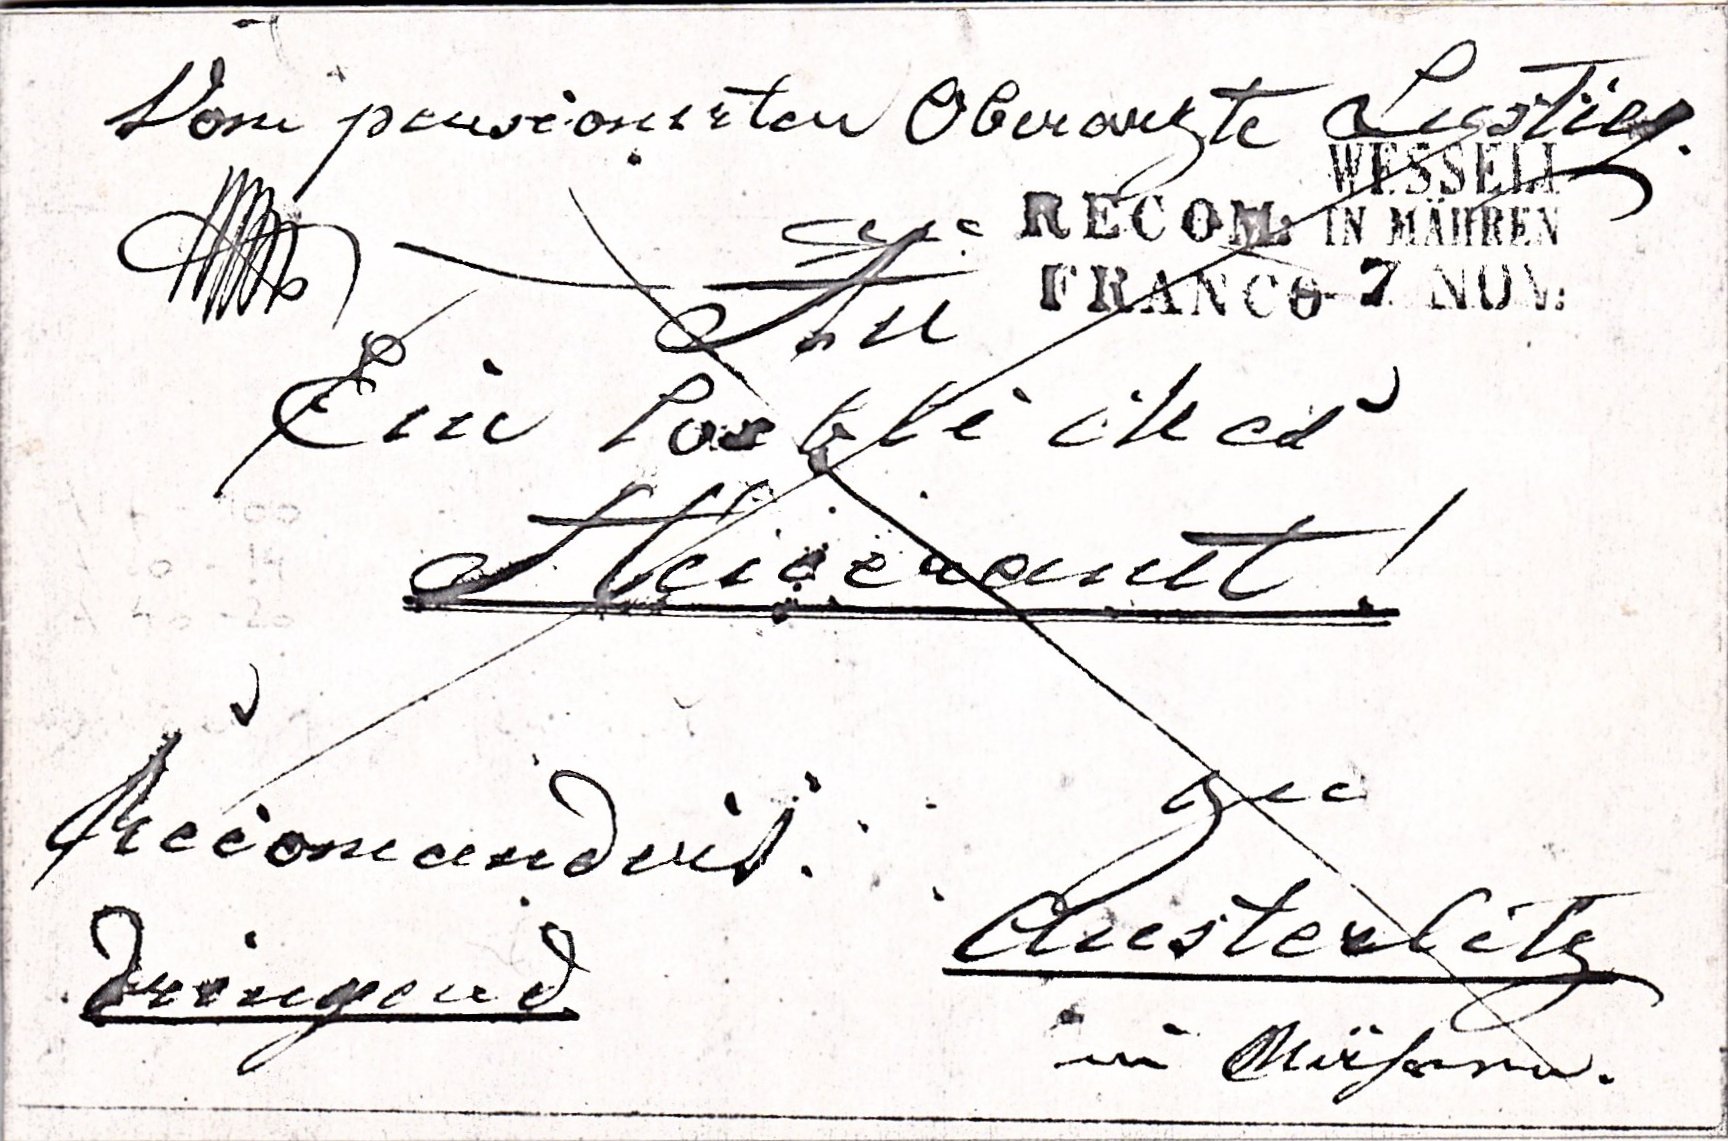 Vom pensionirten Oberarzte Lustig.
WESSELI
RECOM. IN MÄHREN
FRANCO 7 NOV:
An
Ein loebliches
Steueramt!
Recomandirt.
zu
Dringend
Austerlitz
in Mähren.